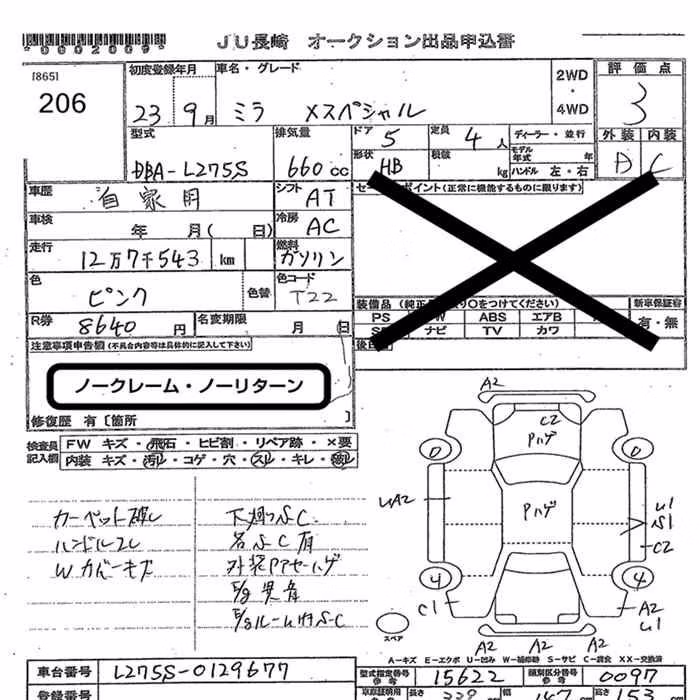 *0002009*
JU長崎 オークション出品申込書
[865]
206
初度登録年月
23 9月
車名・グレード
ミラ Xスペシャル
2WD
・
4WD
評価点
3
型式
DBA-L275S
排気量
660cc
ドア 5
定員 4人
ディーラー・並行
モデル年式 年
外装 内装
D C
形状 HB
積載 kg
ハンドル 左・右
車歴 自家用
シフト AT
車検 年 月( 日)
冷房 AC
走行 12万7千543 km
燃料 ガソリン
色 ピンク 色替
色コード T22
R券 8640円
名変期限 月 日
ポイント(正常に機能するものに限ります)
装備品
○をつけてください)
新車保証書
有・無
PS ABS エアB
ナビ TV カワ
注意事項申告欄(不具合内容等は具体的に記入して下さい)
ノークレーム・ノーリターン
修復歴 有[箇所 ]
検査員記入欄
FW キズ・飛石・ヒビ割・リペア跡・×要
内装 キズ・汚レ・コゲ・穴・スレ・キレ・破レ
カーペット破レ
ハンドルスレ
Wカバーキズ
下廻りSC
各SC有
E/g異音
E/gルーム内S-C
A2
C2
Pハゲ
0 0
Pハゲ
A2
U1
S1
C2
4 4
C1
A2
U1
A2 A2 A2
スペア
A-キズ E-エクボ U-凹み W-補修跡 S-サビ C-腐食 XX-交換済
車台番号 L275S-0129677
型式指定番号 参考 15622
類別区分番号 参考 0097
登録番号
長さ 339 幅 147
153